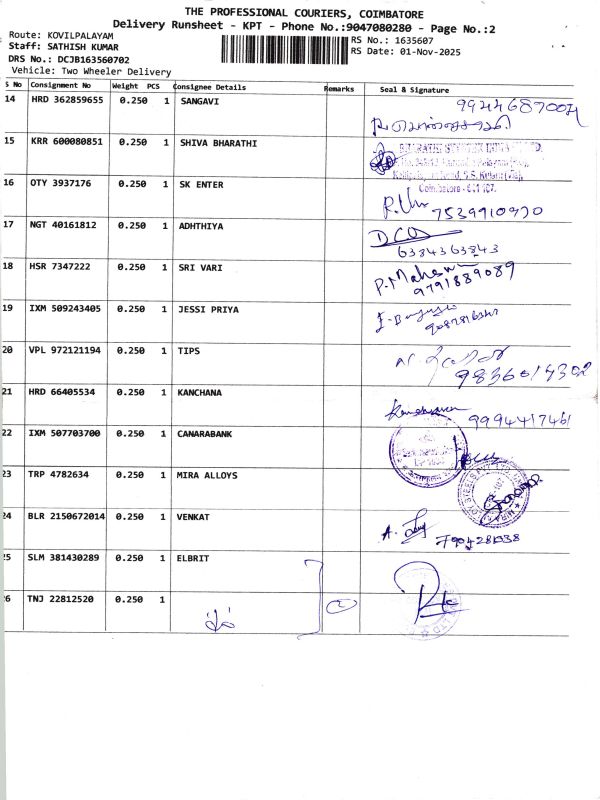 THE PROFESSIONAL COURIERS, COIMBATORE
Delivery Runsheet - KPT - Phone No.:9047080280 - Page No.:2
Route: KOVILPALAYAM
RS No.: 1635607
Staff: SATHISH KUMAR
RS Date: 01-Nov-2025
DRS No.: DCJB163560702
Vehicle: Two Wheeler Delivery
S No Consignment No Weight PCS Consignee Details Remarks Seal & Signature
14 HRD 362859655 0.250 1 SANGAVI
15 KRR 600080851 0.250 1 SHIVA BHARATHI
Coimbatore - 641 107.
16 OTY 3937176 0.250 1 SK ENTER
7539910970
17 NGT 40161812 0.250 1 ADHTHIYA
6384363843
18 HSR 7347222 0.250 1 SRI VARI
9791889089
19 IXM 509243405 0.250 1 JESSI PRIYA
20 VPL 972121194 0.250 1 TIPS
9836014302
21 HRD 66405534 0.250 1 KANCHANA
9994417461
22 IXM 507703700 0.250 1 CANARABANK
23 TRP 4782634 0.250 1 MIRA ALLOYS
24 BLR 2150672014 0.250 1 VENKAT
25 SLM 381430289 0.250 1 ELBRIT
26 TNJ 22812520 0.250 1
2